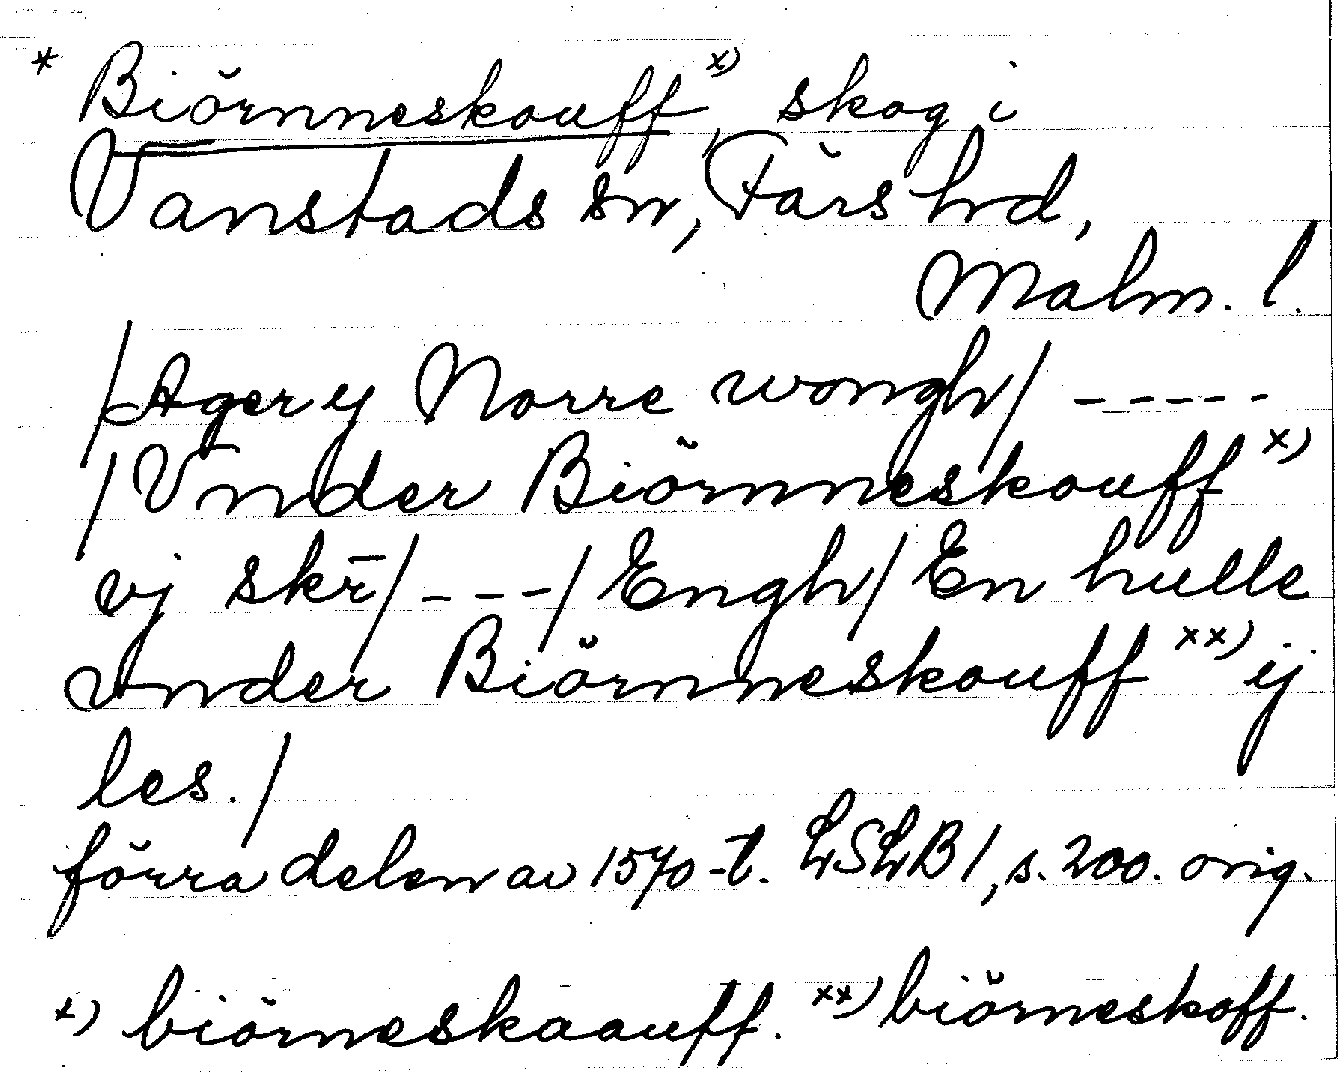 * Biörnneskouff x), skog i
Vanstads sn, Färs hd,
Malm. l.
/Ager y Norre wongh/ -----
/Vnder Biörnneskouff x)
vj skr̄/ ---/ Engh/ En hulle
vnder Biörnneskouff xx) ij
les./
förra delen av 1570-t. LSLB 1, s. 200. orig.
x) biörneskaauff. xx) biörneskoff.